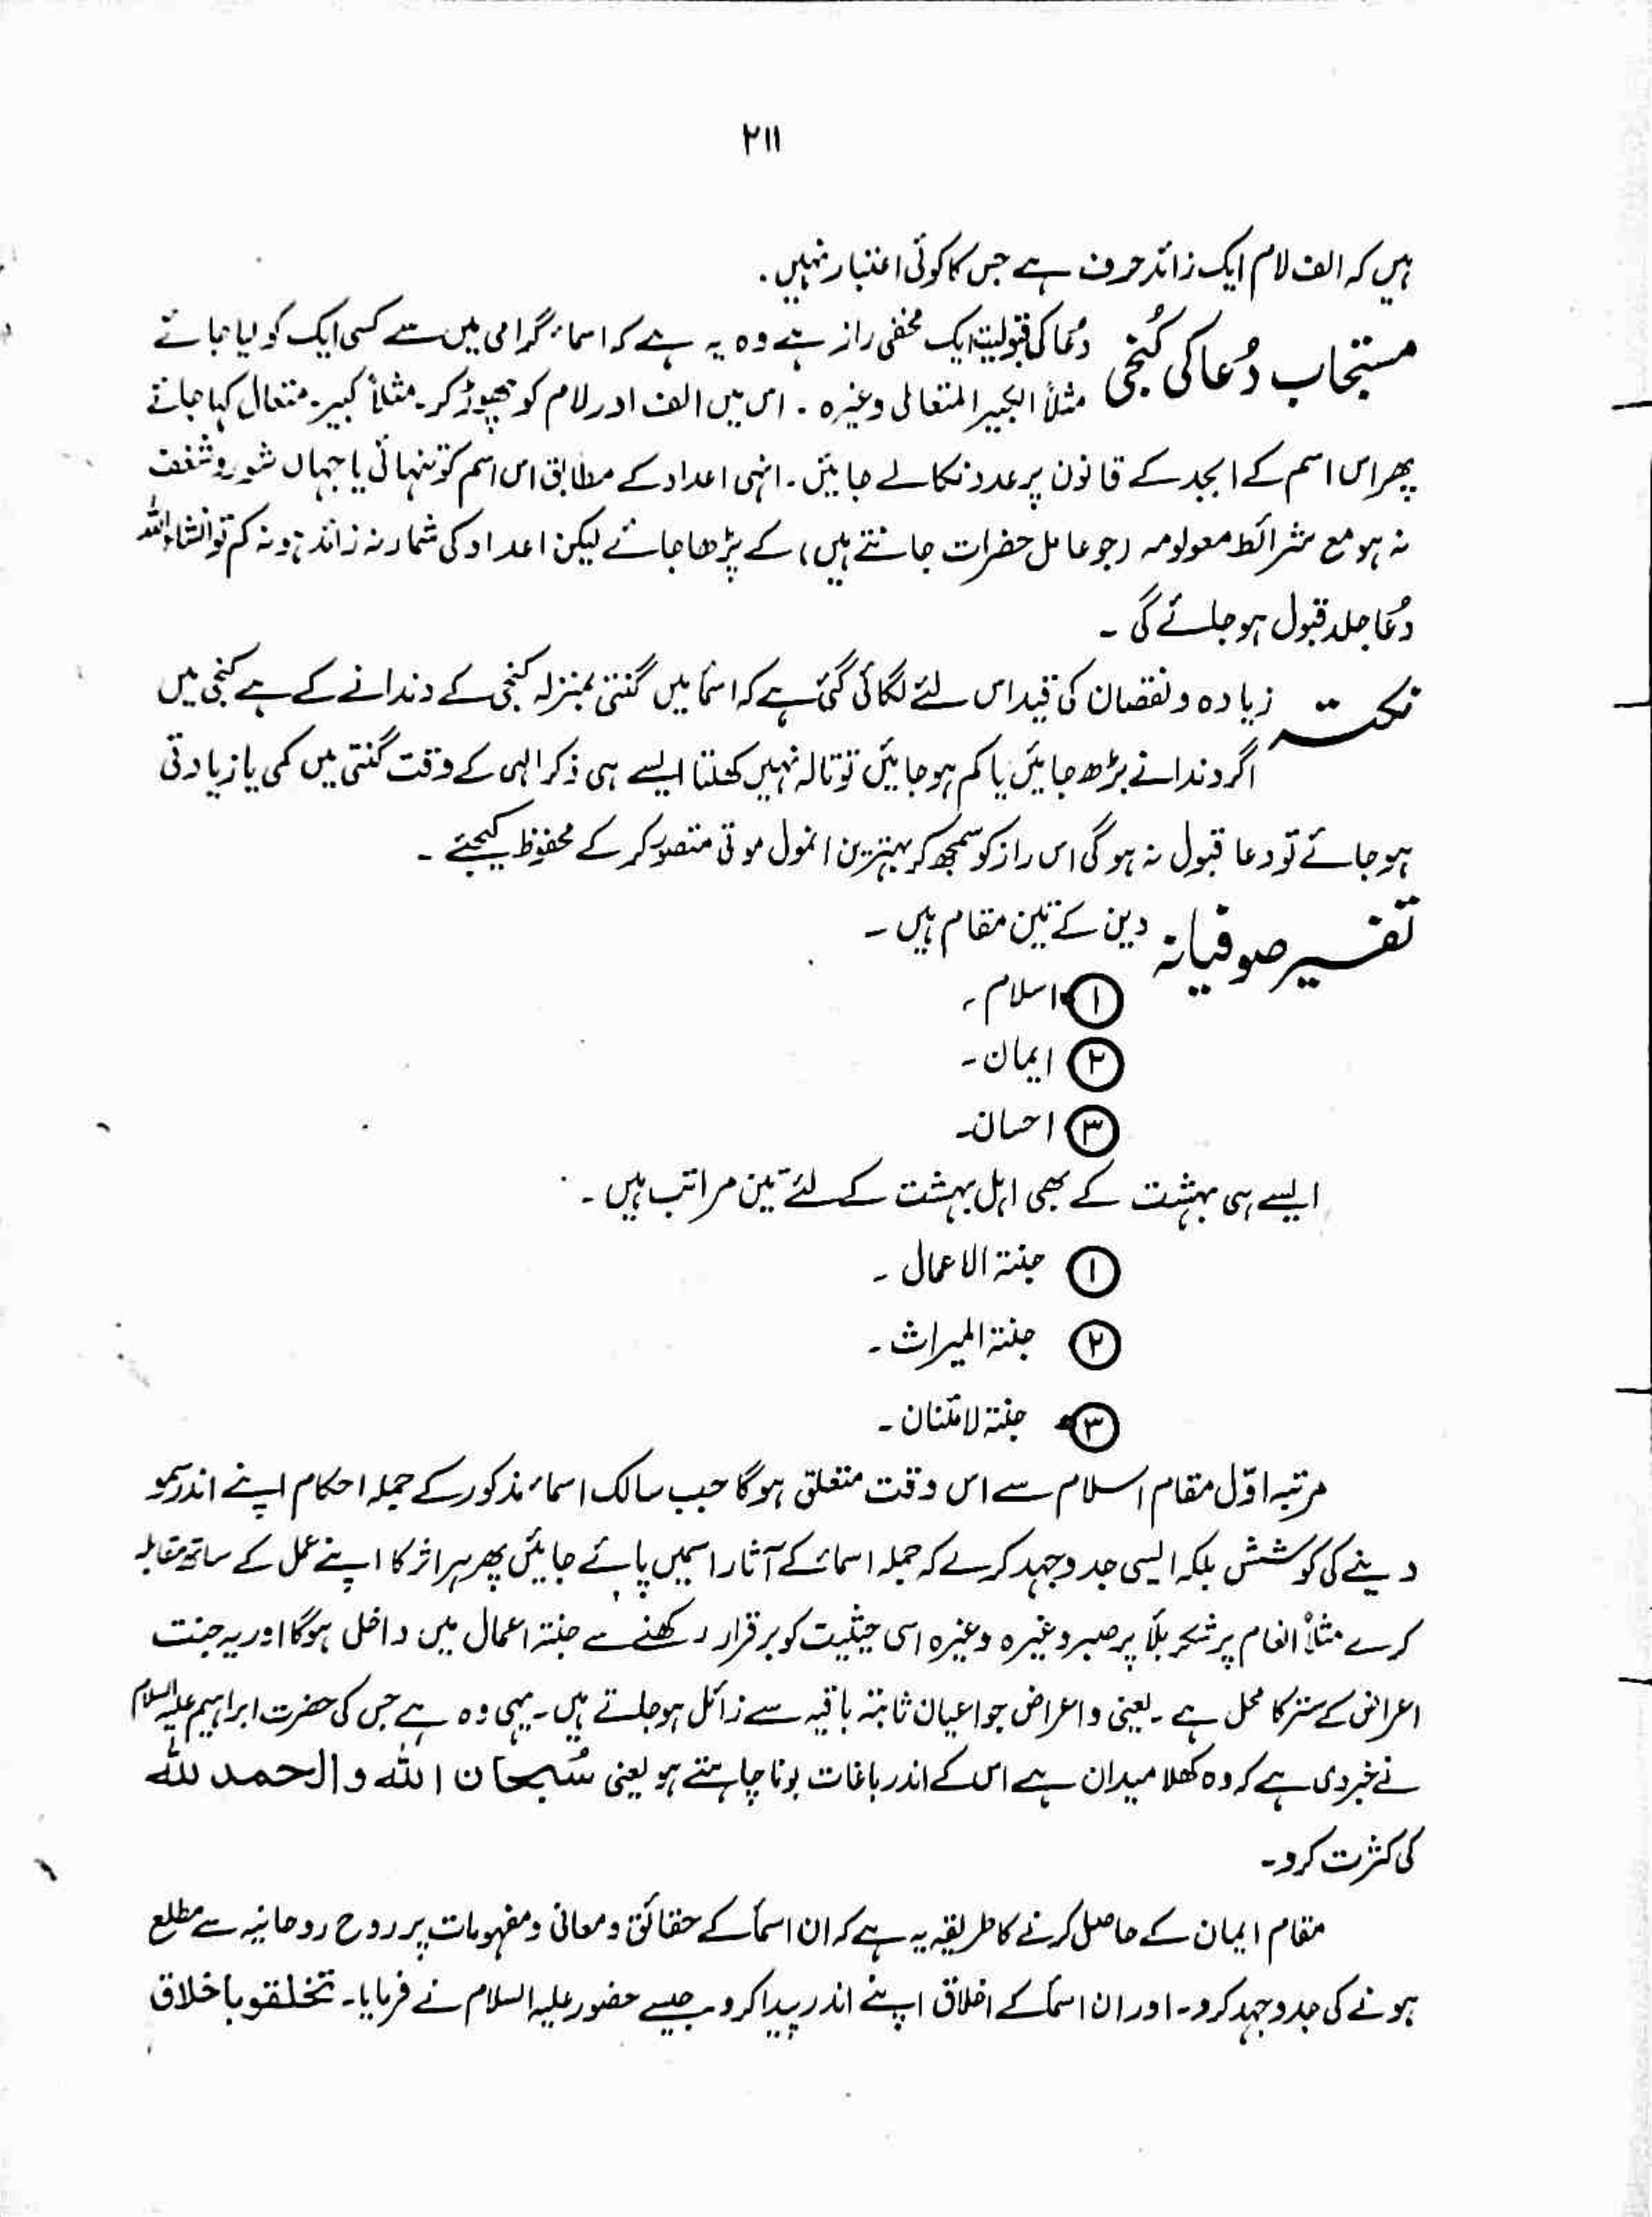 ۲۱۱
ہیں کہ الف لام ایک زائد حرف ہے جس کا کوئی اعتبار نہیں.
مستجاب دُعا کی کُنجی دُعا کی قبولیت ایک مخفی راز ہے وہ یہ ہے کہ اسماء گرامی میں سے کسی ایک کو لیا جائے
مثلاً الکبیر المتعالی وغیرہ ۔ اس میں الف اور لام کو چھوڑ کر۔ مثلاً کبیر۔ متعال کہا جائے
پھر اس اسم کے ابجد کے قانون پر عدد نکالے جائیں۔ انہی اعداد کے مطابق اس اسم کو تنہائی یا جہاں شور و شغف
نہ ہو مع شرائط معلومہ (جو عامل حضرات جانتے ہیں) کے پڑھا جائے لیکن اعداد کی شمار نہ زائد ہو نہ کم تو انشاء اللہ
دُعا جلد قبول ہو جائے گی ۔
نکتہ زیادہ و نقصان کی قید اس لئے لگائی گئی ہے کہ اسمأ میں گنتی بمنزلہ کنجی کے دندانے کے ہے کنجی میں
اگر دندانے بڑھ جائیں یا کم ہو جائیں تو تالہ نہیں کھلتا ایسے ہی ذکر الہی کے وقت گنتی میں کمی یا زیادتی
ہو جائے تو دعا قبول نہ ہو گی اس راز کو سمجھ کر بہترین انمول موتی متصور کر کے محفوظ کیجئے ۔
تفسیر صوفیانہ دین کے تین مقام ہیں ۔
۱ اسلام ۔
۲ ایمان ۔
۳ احسان۔
ایسے ہی بہشت کے بھی اہل بہشت کے لئے تین مراتب ہیں ۔
۱ جنۃ الاعمال ۔
۲ جنۃ المیراث ۔
۳ جنۃ لامتنان ۔
مرتبہ اوّل مقام اسلام سے اس وقت متعلق ہو گا جب سالک اسماء مذکور کے جملہ احکام اپنے اندر سمو
دینے کی کوشش بلکہ ایسی جد و جہد کرے کہ جملہ اسماء کے آثار اسمیں پائے جائیں پھر ہر اثر کا اپنے عمل کے ساتھ مقابلہ
کرے مثلاً انعام پر شکر بلأ پر صبر وغیرہ وغیرہ اسی حیثیت کو برقرار رکھنے سے جنۃ اعمال میں داخل ہو گا اور یہ جنت
اعراض کے ستر کا محل ہے ۔ یعنی واعراض جو اعیان ثابتہ باقیہ سے زائل ہو جاتے ہیں۔ یہی وہ ہے جس کی حضرت ابراہیم علیہ السلام
نے خبر دی ہے کہ وہ کھلا میدان ہے اس کے اندر باغات بونا چاہتے ہو یعنی سُبحان اللّٰہ والحمد للّٰہ
کی کثرت کرو۔
مقام ایمان کے حاصل کرنے کا طریقہ یہ ہے کہ ان اسمأ کے حقائق و معانی و مفہومات پر روح روحانیہ سے مطلع
ہونے کی جد و جہد کرو۔ اور ان اسمأ کے اخلاق اپنے اندر پیدا کرو جیسے حضور علیہ السلام نے فرمایا۔ تخلقو باخلاق